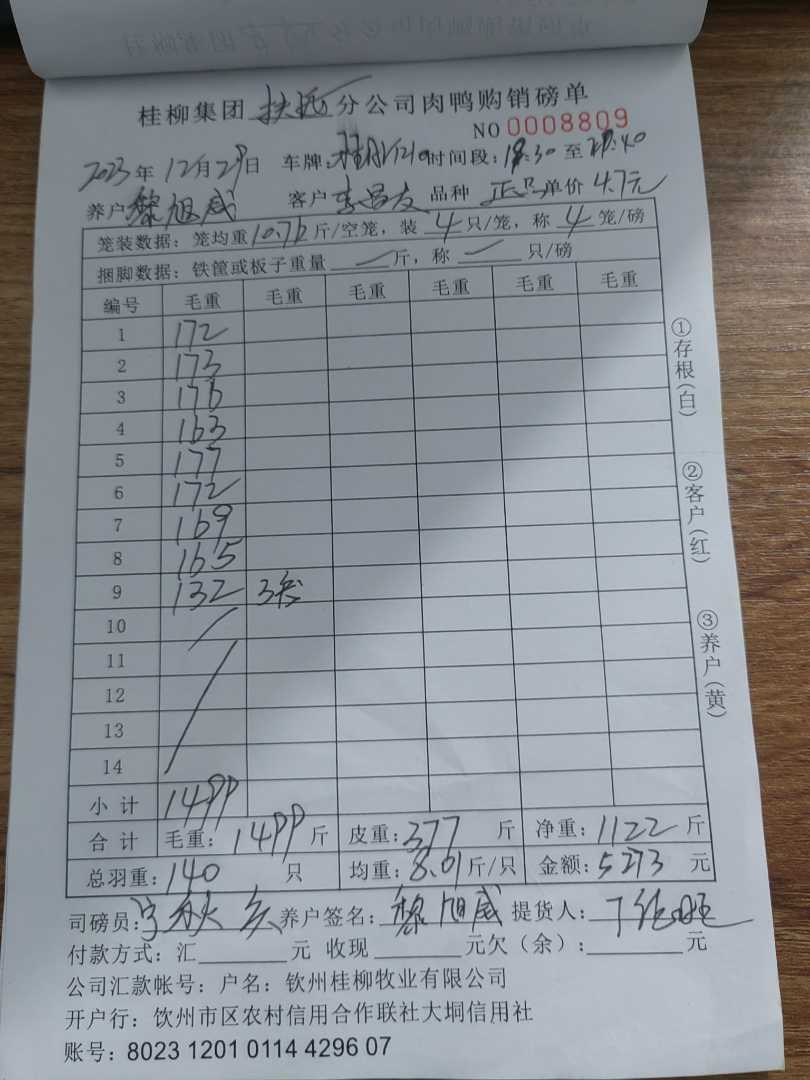 桂柳集团 扶绥 分公司肉鸭购销磅单
NO 0008809
2023年 12月29日 车牌: 时间段: 至
养户 黎旭威 客户 李昌友 品种 正品 单价 4.7元
笼装数据：笼均重10.76斤/空笼，装 4 只/笼，称 4 笼/磅
捆脚数据：铁筐或板子重量 — 斤，称 — 只/磅
编号 毛重 毛重 毛重 毛重 毛重 毛重
1 172
2 173
3 176
4 163
5 177
6 172
7 169
8 165
9 132 3笼
10
11
12
13
14
小计 1499
合计 毛重：1499斤 皮重：377 斤 净重：1122斤
总羽重：140 只 均重：8.01斤/只 金额：5273 元
司磅员： 养户签名：黎旭威 提货人：
付款方式：汇 元 收现 元欠（余）： 元
公司汇款帐号：户名：钦州桂柳牧业有限公司
开户行：饮州市区农村信用合作联社大垌信用社
账号：8023 1201 0114 4296 07
①存根(白)
②客户(红)
③养户(黄)